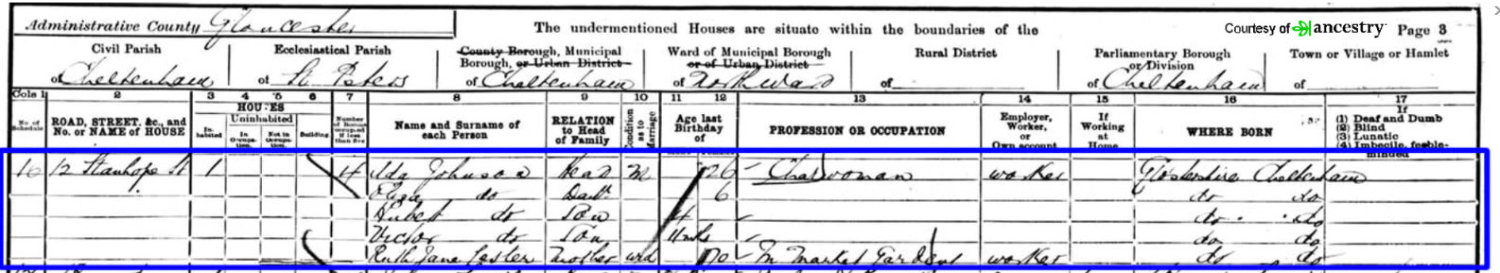 Administrative County Gloucester The undermentioned Houses are situate within the boundaries of the Courtesy of ancestry Page 3
Civil Parish Ecclesiastical Parish County Borough, Municipal Borough, or Urban District Ward of Municipal Borough or of Urban District Rural District Parliamentary Borough or Division Town or Village or Hamlet
of Cheltenham of St Peters of Cheltenham of North Ward of of Cheltenham of
Cols 1 2 3 4 5 6 7 8 9 10 11 12 13 14 15 16 17
No. of Schedule ROAD, STREET, &c., and No. or NAME of HOUSE HOUSES Inhabited Uninhabited In Occupation. Not in Occupation. Building Number of Rooms occupied if less than five Name and Surname of each Person RELATION to Head of Family Condition as to Marriage Age last Birthday of PROFESSION OR OCCUPATION Employer, Worker, or Own account If Working at Home WHERE BORN If (1) Deaf and Dumb (2) Blind (3) Lunatic (4) Imbecile, feeble-minded
16 12 Stanhope St 1 4 Ida Johnson Head M 26 Charwoman worker Glostershire Cheltenham
do Daur 6 do do
Hubert do Son 4 do do
Victor do Son 11 mths do do
Ruth Jane Lester Mother wid 70 In Market Garden worker do do